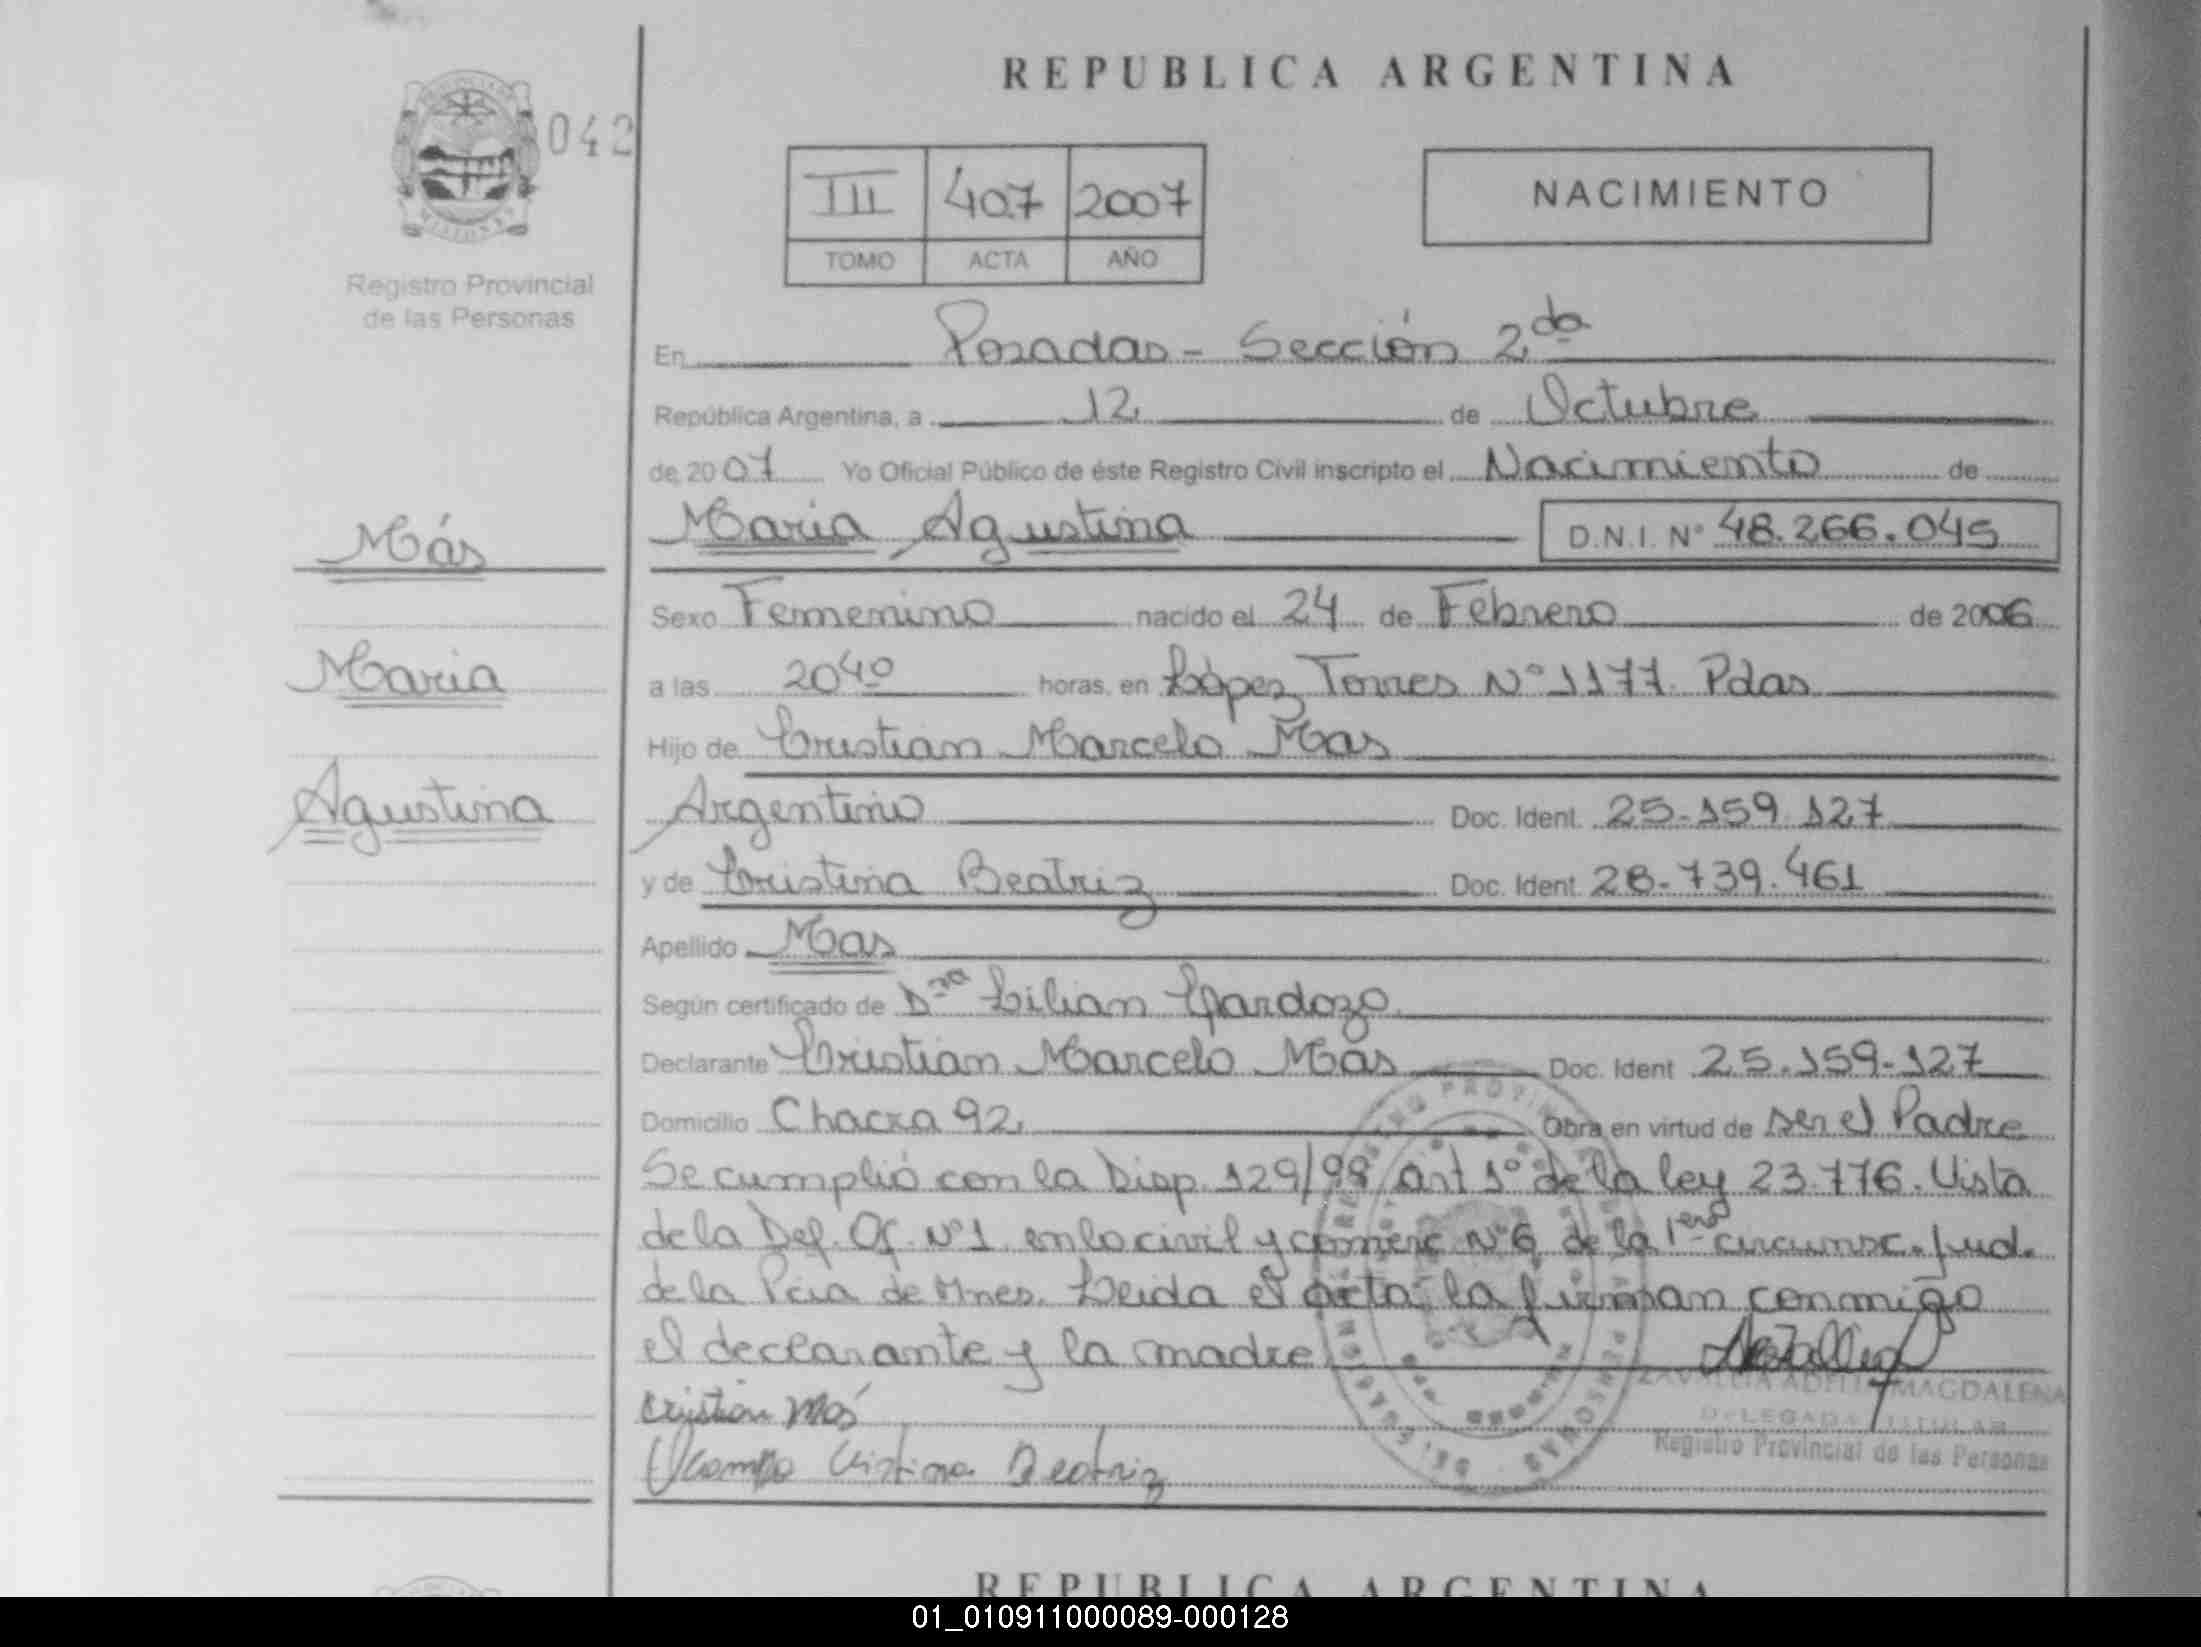 REPUBLICA ARGENTINA
042
MISIONES
Registro Provincial
de las Personas
III 407 2007
TOMO ACTA AÑO
NACIMIENTO
En Posadas - Sección 2da
República Argentina, a 12 de Octubre
de 2007 Yo Oficial Público de éste Registro Civil inscripto el Nacimiento de
Más
Maria Agustina D.N.I. Nº 48.266.045
Sexo Femenino nacido el 24 de Febrero de 2006
Maria
a las 20 40 horas, en López Torres Nº 1177. Pdas
Hijo de Cristian Marcelo Mas
Agustina
Argentino Doc. Ident. 25.159.127
y de Cristina Beatriz Doc. Ident. 28.739.461
Apellido Mas
Según certificado de Dra Lilian Cardozo
Declarante Cristian Marcelo Más Doc. Ident 25.159.127
Domicilio Chacra 92 Obra en virtud de ser el Padre
Se cumplió con la Disp. 129/98 art 1º de la ley 23.776. Vista
de la Def. Of. Nº 1 en lo civil y comerc Nº 6 de la 1era circunsc. Jud.
de la Pcia de Mnes. Leida el acta, la firman conmigo
el declarante y la madre
Cristian Más
ZAVALLIA ADELIA MAGDALENA
DELEGADA TITULAR
Registro Provincial de las Personas
Ocampo Cristina Beatriz
REPUBLICA ARGENTINA
01_010911000089-000128